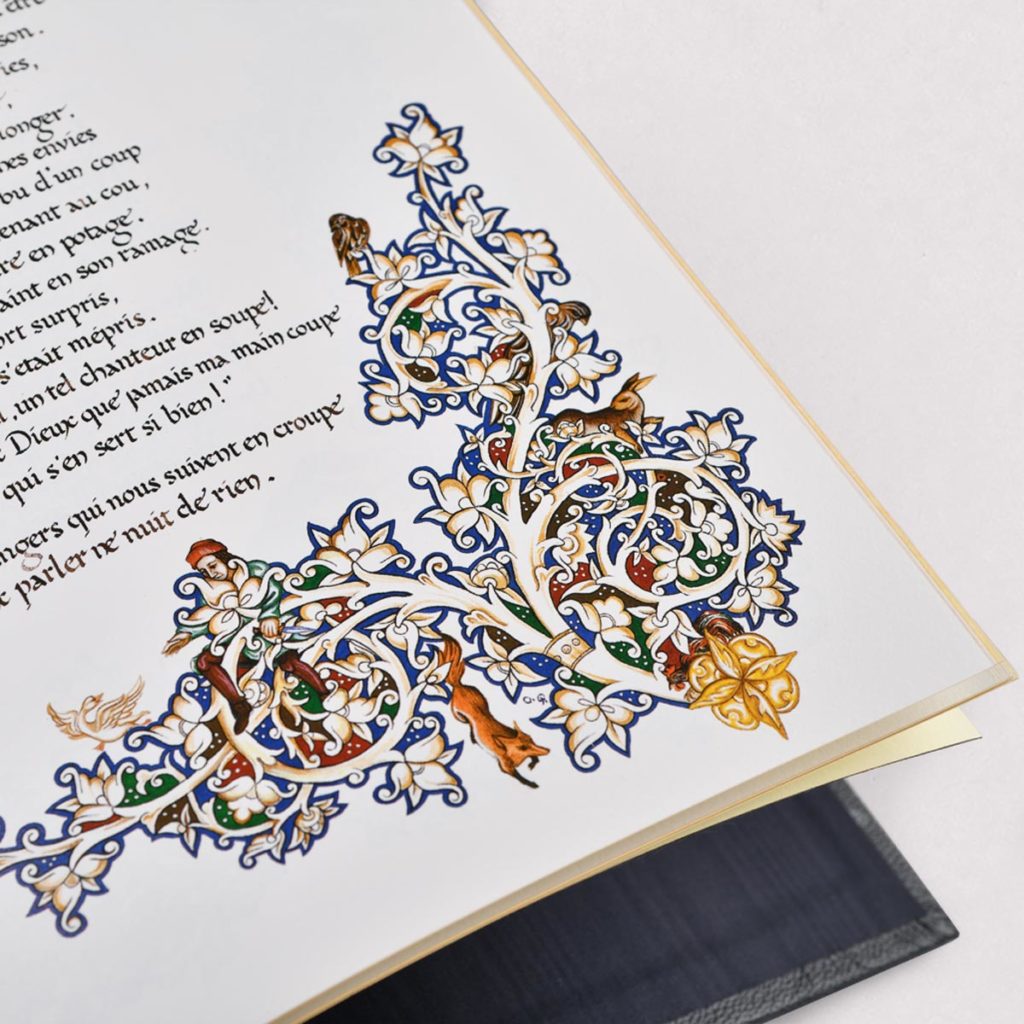 être
son.
ies,
,
longer.
nes envies
bu d'un coup
enant au cou,
re en potage.
aint en son ramage.
ort surpris,
s'était mépris.
, un tel chanteur en soupe!
Dieux que jamais ma main coupe
qui s'en sert si bien!"
ngers qui nous suivent en croupe
parler ne nuit de rien.
O.G.